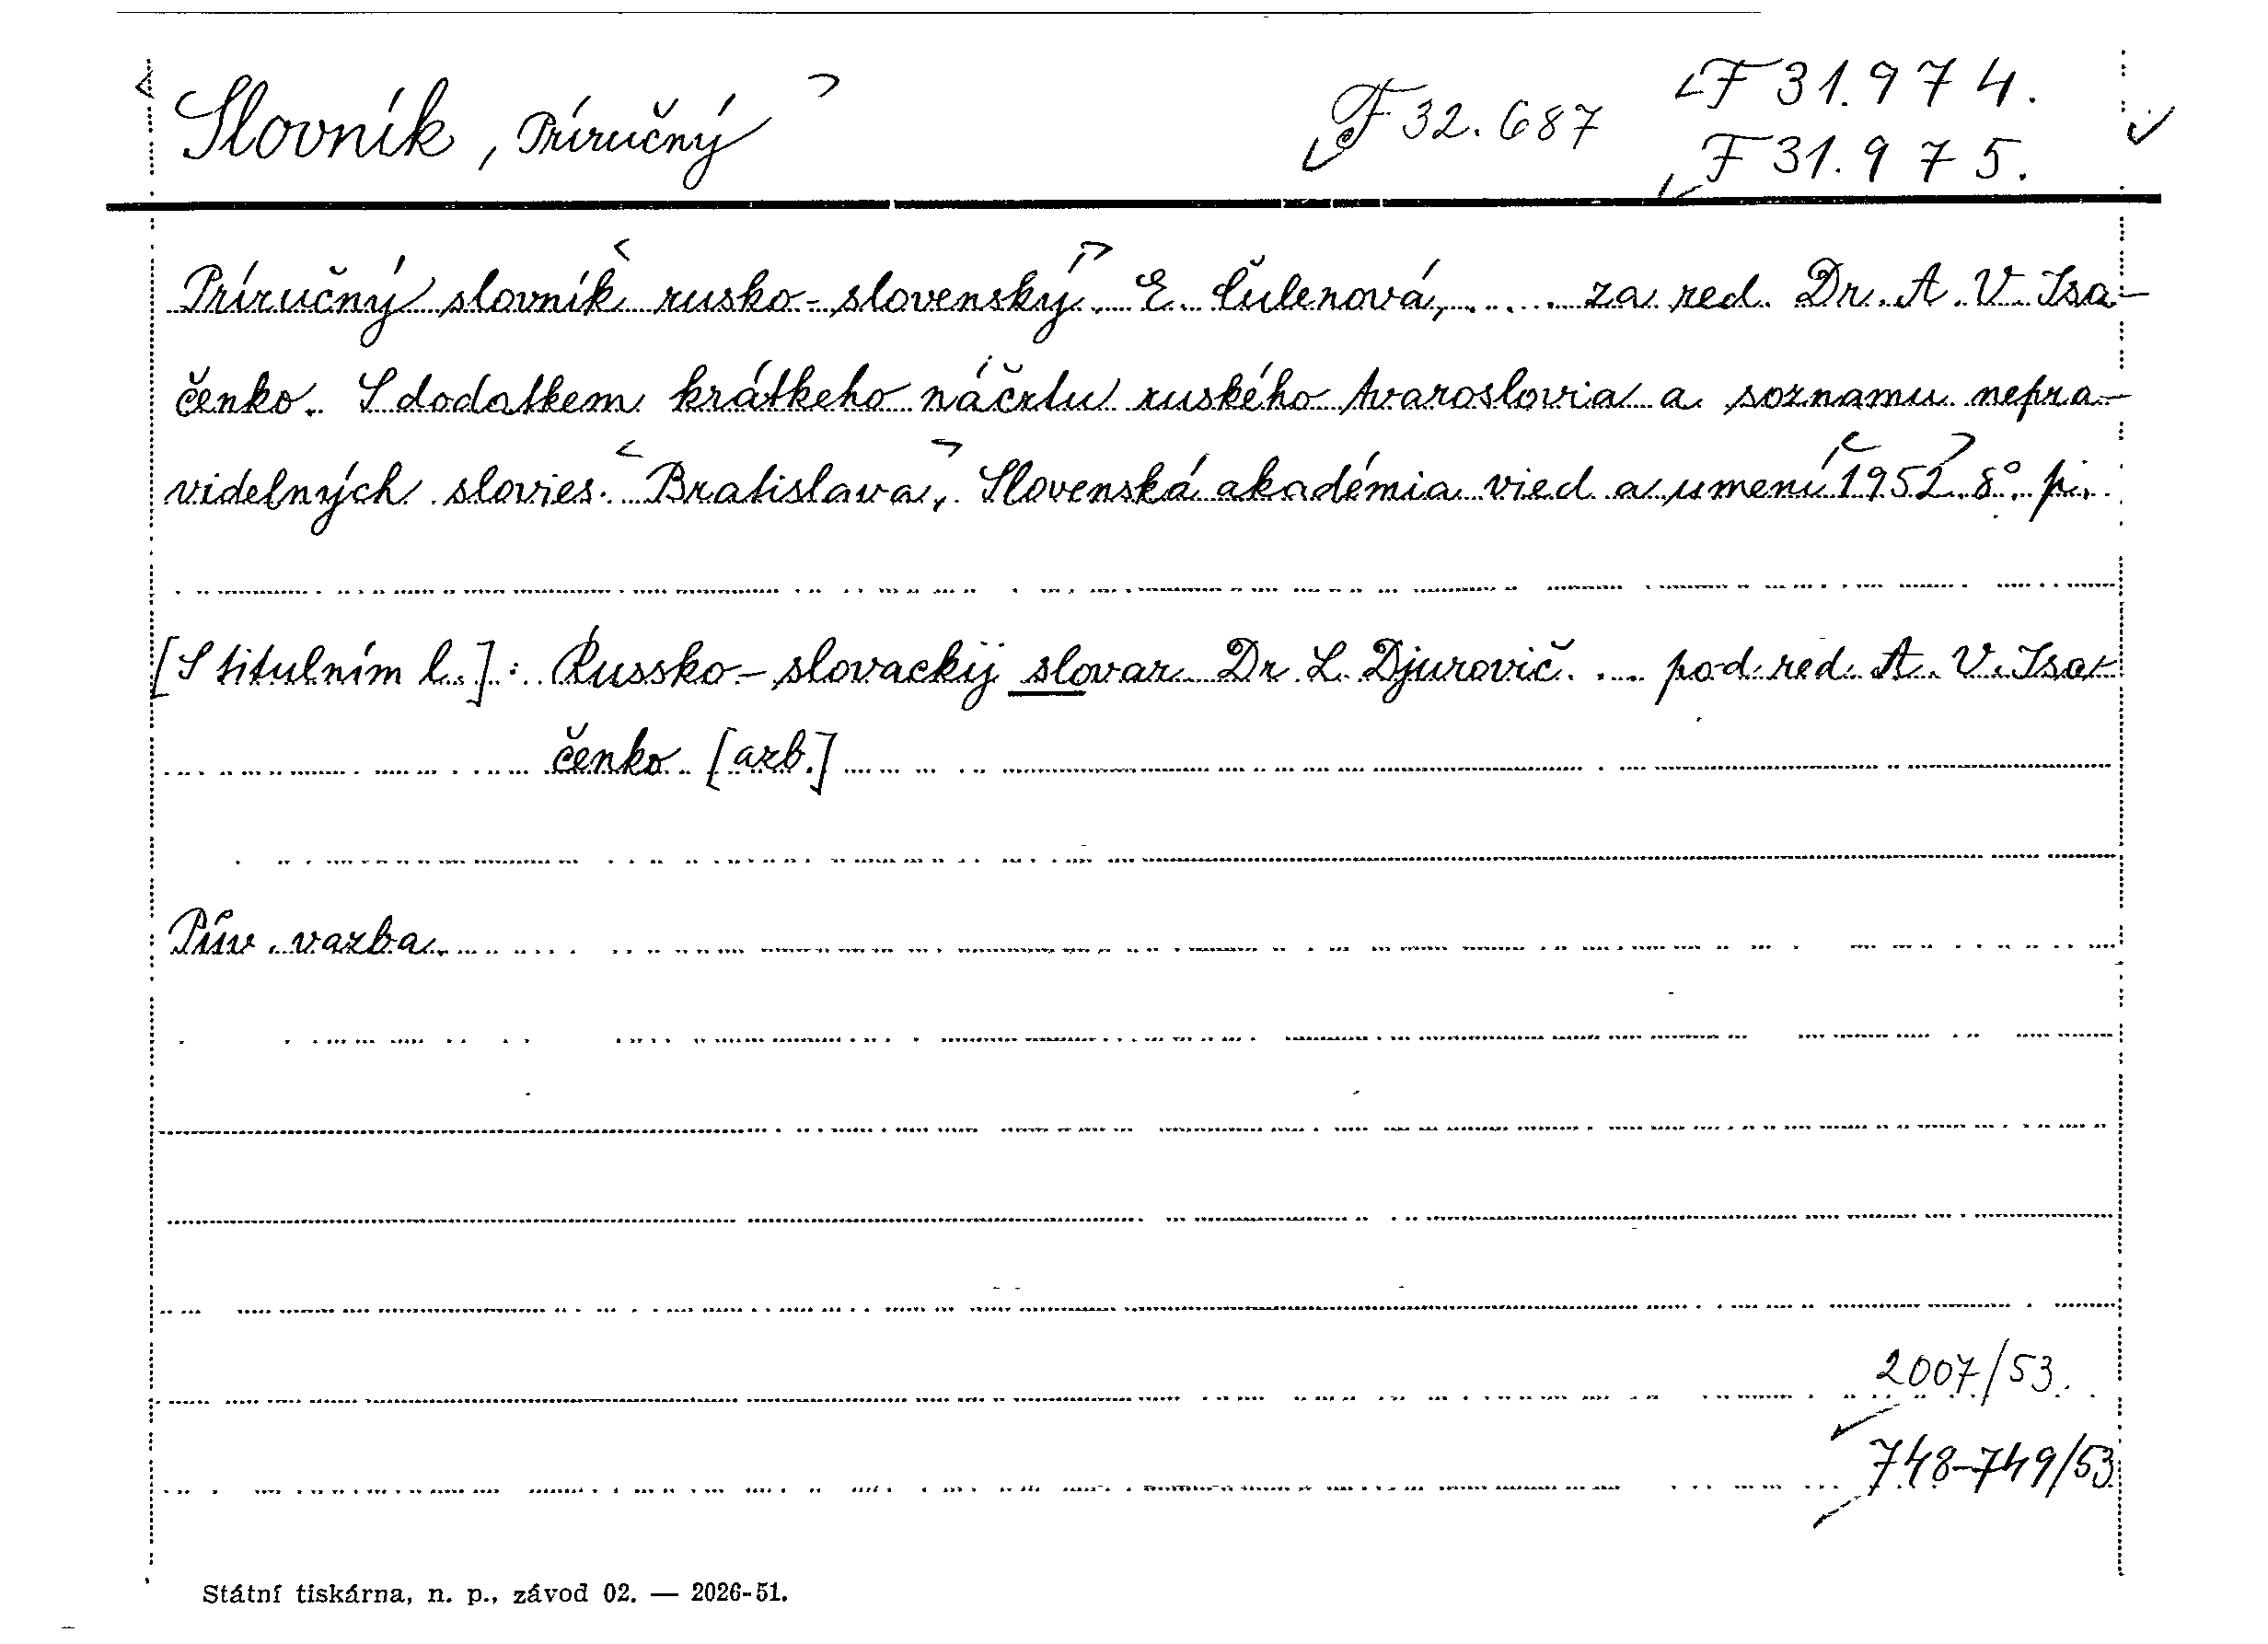 Slovník, Príručný
F 32.687
F 31.974.
F 31.975.
Príručný slovník rusko-slovenský. E. Čulenová, .... za red. Dr. A. V. Isa-
čenko. S dodatkem krátkeho náčrtu ruského tvaroslovia a soznamu nepra-
videlných slovies. Bratislava, Slovenská akadémia vied a umení 1952. 8°.
[S titulním l.]: Russko-slovackij slovar Dr. L. Djurovič. ... pod red. A. V. Isa-
čenko [azb.]
Pův. vazba.
2007/53.
748-749/53
Státní tiskárna, n. p., závod 02. — 2026-51.